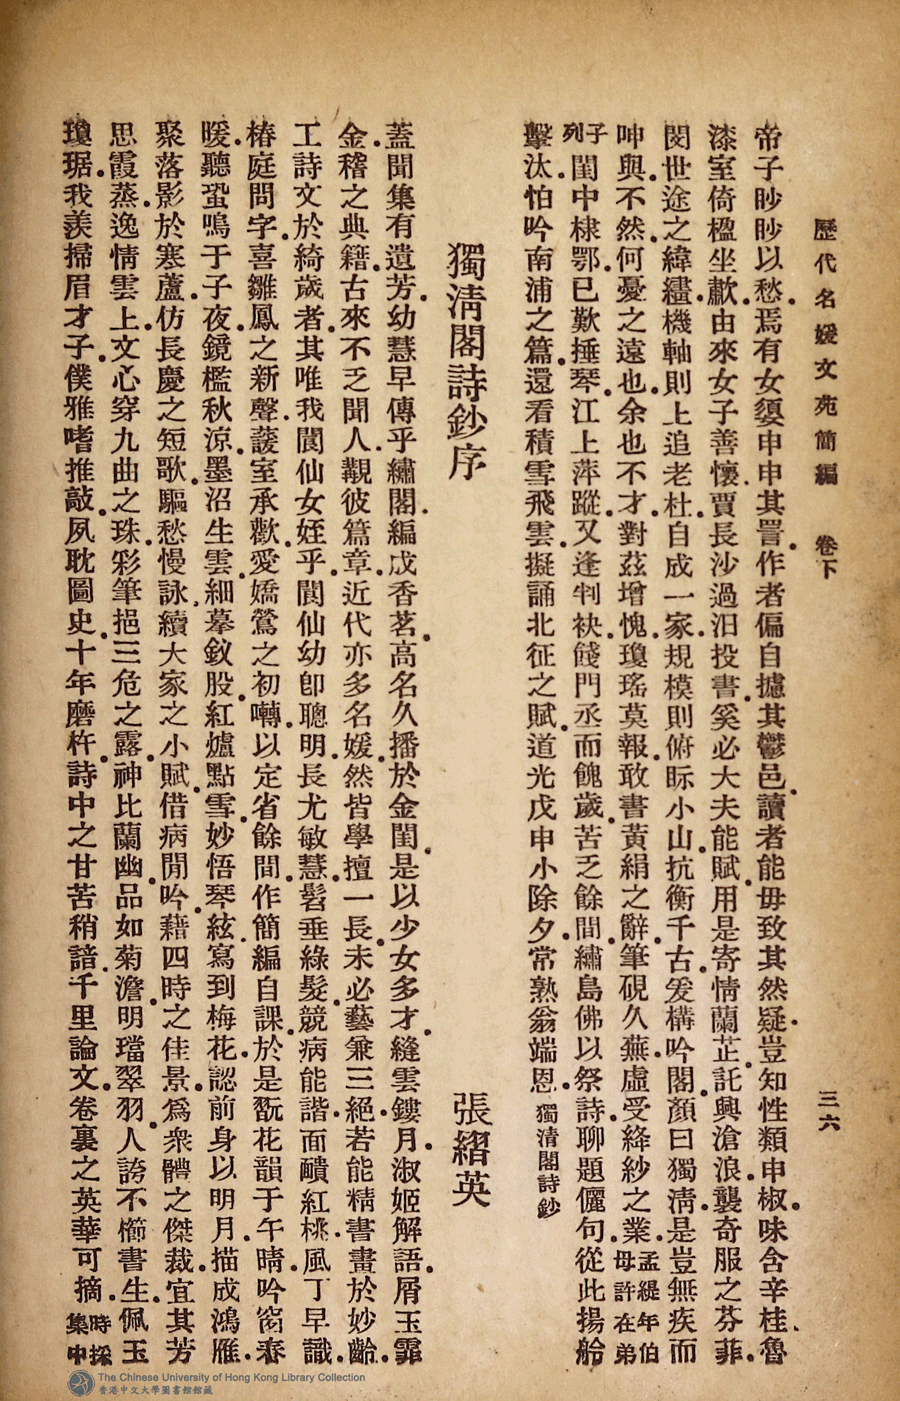 歷代名媛文苑簡編 卷下 三六
帝子眇眇以愁。焉有女嬃申申其詈。作者偏自攄其鬱邑。讀者能毋致其然疑。豈知性類申椒。味含辛桂。魯
漆室倚楹坐歗。由來女子善懷。賈長沙過汨投書。奚必大夫能賦。用是寄情蘭芷。託興滄浪。襲奇服之芬菲。
閔世途之緯繣。機軸則上追老杜。自成一家。規模則俯眎小山。抗衡千古。爰構吟閣。顏曰獨淸。是豈無疾而
呻與。不然。何憂之遠也。余也不才。對茲增愧。瓊瑤莫報。敢書黃絹之辭。筆硯久蕪。虛受絳紗之業。孟緹年伯母許在弟
子列。閨中棣鄂。已歎捶琴。江上萍蹤。又逢判袂。餞門丞而餽歲。苦乏餘間。繡島佛以祭詩。聊題儷句。從此揚舲
擊汰。怕吟南浦之篇。還看積雪飛雲。擬誦北征之賦。道光戊申小除夕。常熟翁端恩。獨淸閣詩鈔
獨淸閣詩鈔序 張縉英
蓋聞集有遺芳。幼慧早傳乎繡閣。編成香茗。高名久播於金閨。是以少女多才。縫雲鏤月。淑姬解語。屑玉霏
金。稽之典籍。古來不乏聞人。覯彼篇章。近代亦多名媛。然皆學擅一長。未必藝兼三絕。若能精書畫於妙齡。
工詩文於綺歲者。其唯我閬仙女姪乎。閬仙幼卽聰明。長尤敏慧。髫垂綠髮。競病能諧。面靧紅桃。風丁早識。
椿庭問字。喜雛鳳之新聲。萲室承歡。愛嬌鶯之初囀。以定省餘間。作簡編自課。於是翫花韻于午晴。吟窗春
暖。聽蛩鳴于子夜。鏡檻秋涼。墨沼生雲。細摹釵股。紅爐點雪。妙悟琴絃。寫到梅花。認前身以明月。描成鴻雁。
聚落影於寒蘆。仿長慶之短歌。驅愁慢詠。續大家之小賦。借病閒吟。藉四時之佳景。爲衆體之傑裁。宜其芳
思霞蒸。逸情雲上。文心穿九曲之珠。彩筆挹三危之露。神比蘭幽。品如菊澹。明璫翠羽。人誇不櫛書生。佩玉
瓊琚。我羨掃眉才子。僕雅嗜推敲。夙耽圖史。十年磨杵。詩中之甘苦稍諳。千里論文。卷裏之英華可摘。時採集中
The Chinese University of Hong Kong Library Collection
香港中文大學圖書館館藏